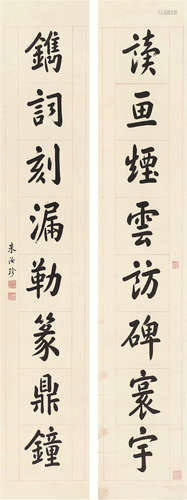 讀画煙雲訪碑寰宇
鐫詞刻漏勒篆鼎鐘
朱汝珍